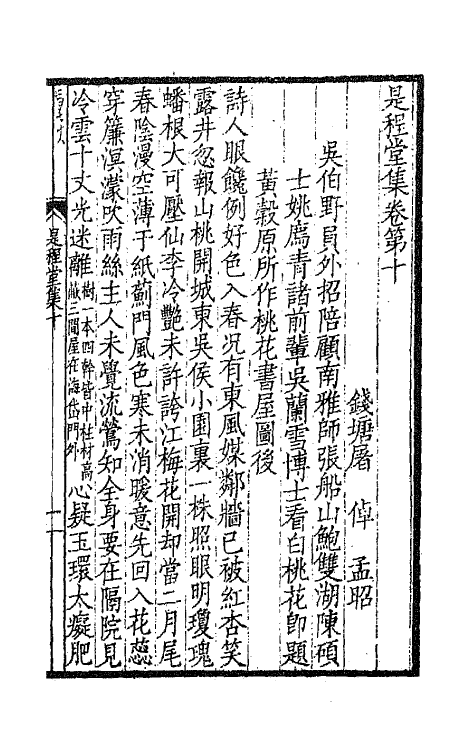 是程堂集卷第十
錢塘屠倬孟昭
吳伯野員外招陪顧南雅師張船山鮑雙湖陳碩
士姚鷹青諸前輩吳蘭雪博士看白桃花卽題
黃穀原所作桃花書屋圖後
詩人眼饞例好色入春况有東風媒鄰牆已被紅杏笑
露井忽報山桃開城東吳侯小園裏一株照眼明瓊瑰
蟠根大可壓仙李冷艷未許誇江梅花開却當二月尾
春陰漫空薄于紙薊門風色寒未消暖意先回入花蕊
穿簾溟濛吹雨絲主人未覺流鶯知全身要在隔院見
冷雲十丈光迷離樹一本四幹皆中柱材高蔽三間屋在海岱門外心疑玉環太癡肥
是程堂集十
一